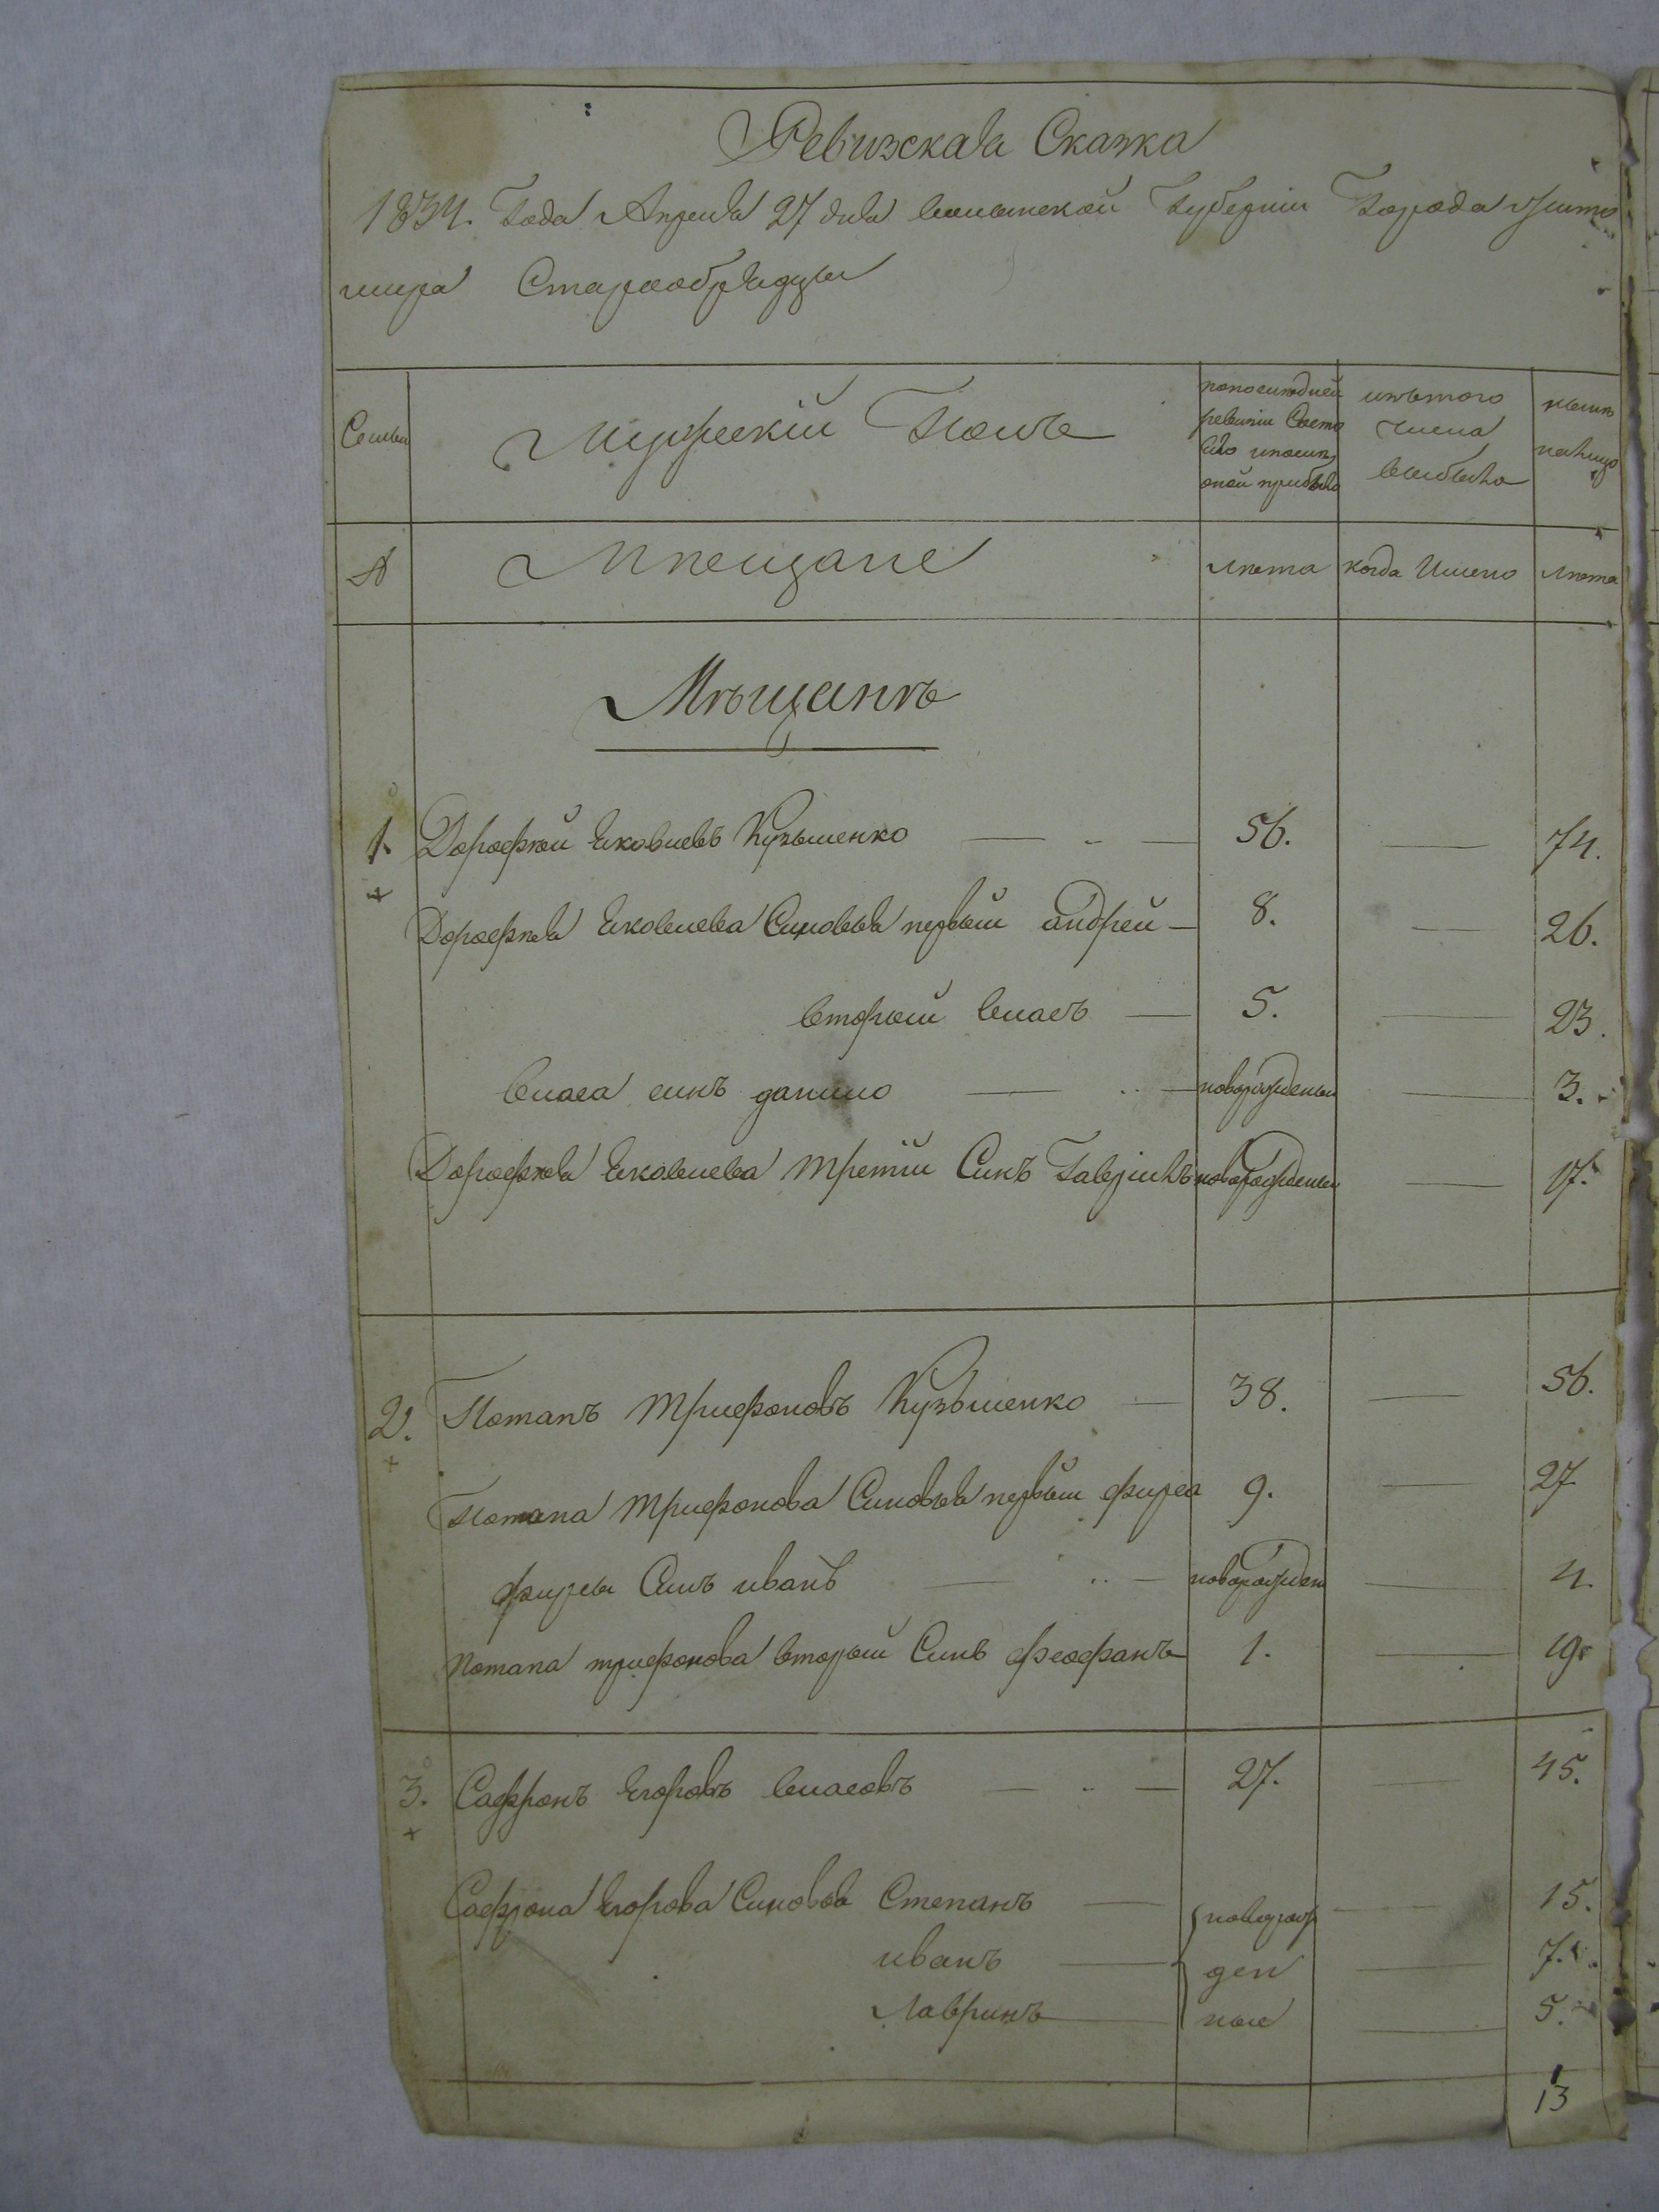 Ревизская Сказка
1834. Года Апреля 27 дня волынской Губернии Города Жито
мира Старообрядцы
Семьи
Мужескій Полъ
попоследней
ревизии Состо
яло ипосля
оной прибыло
изътого
числа
выбыло
ныне
налицо
Мпещане
лпета
когда Имено
лпета
Мѣщанъ
1. Дорофѣй Яковлевъ Кузьменко — 56. — 74.
Дорофѣя Яковлева Синовья первый андрей — 8. — 26.
вторый власъ — 5. — 23.
власа синъ данило — новорожденый — 3.
Дорофѣя Яковлева третій Синъ Гаврилъ новорожденый — 17.
2. Потапъ трифоновъ Кузьменко — 38. — 56.
Потапа трифонова Синовья первый фирса 9. — 27
фирсы Синъ иванъ — новорожден — 4.
потапа трифонова вторый Синъ феофанъ 1. — 19.
3. Сафронъ Егоровъ власовъ — 27. 45.
Сафрона Егорова Синовья Степанъ — новорож — 15.
иванъ — ден — 7.
Лавринъ — ные — 5.
13